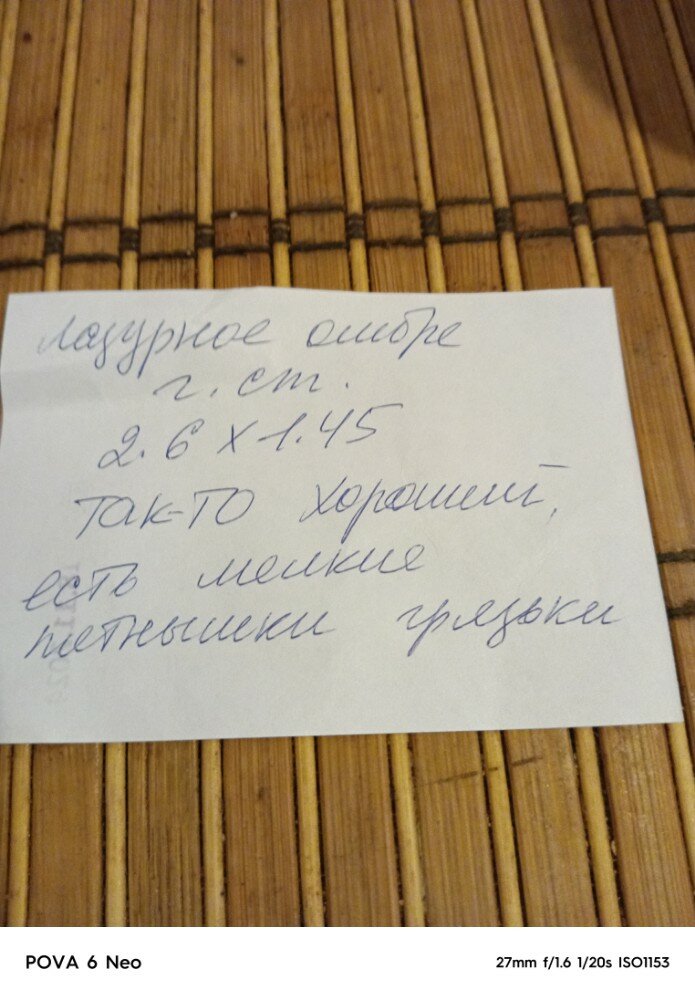 Лазурное омбре
г. ст.
2.6 х 1.45
Так-то хороший,
есть мелкие
пятнышки грязьки
POVA 6 Neo
27mm f/1.6 1/20s ISO1153